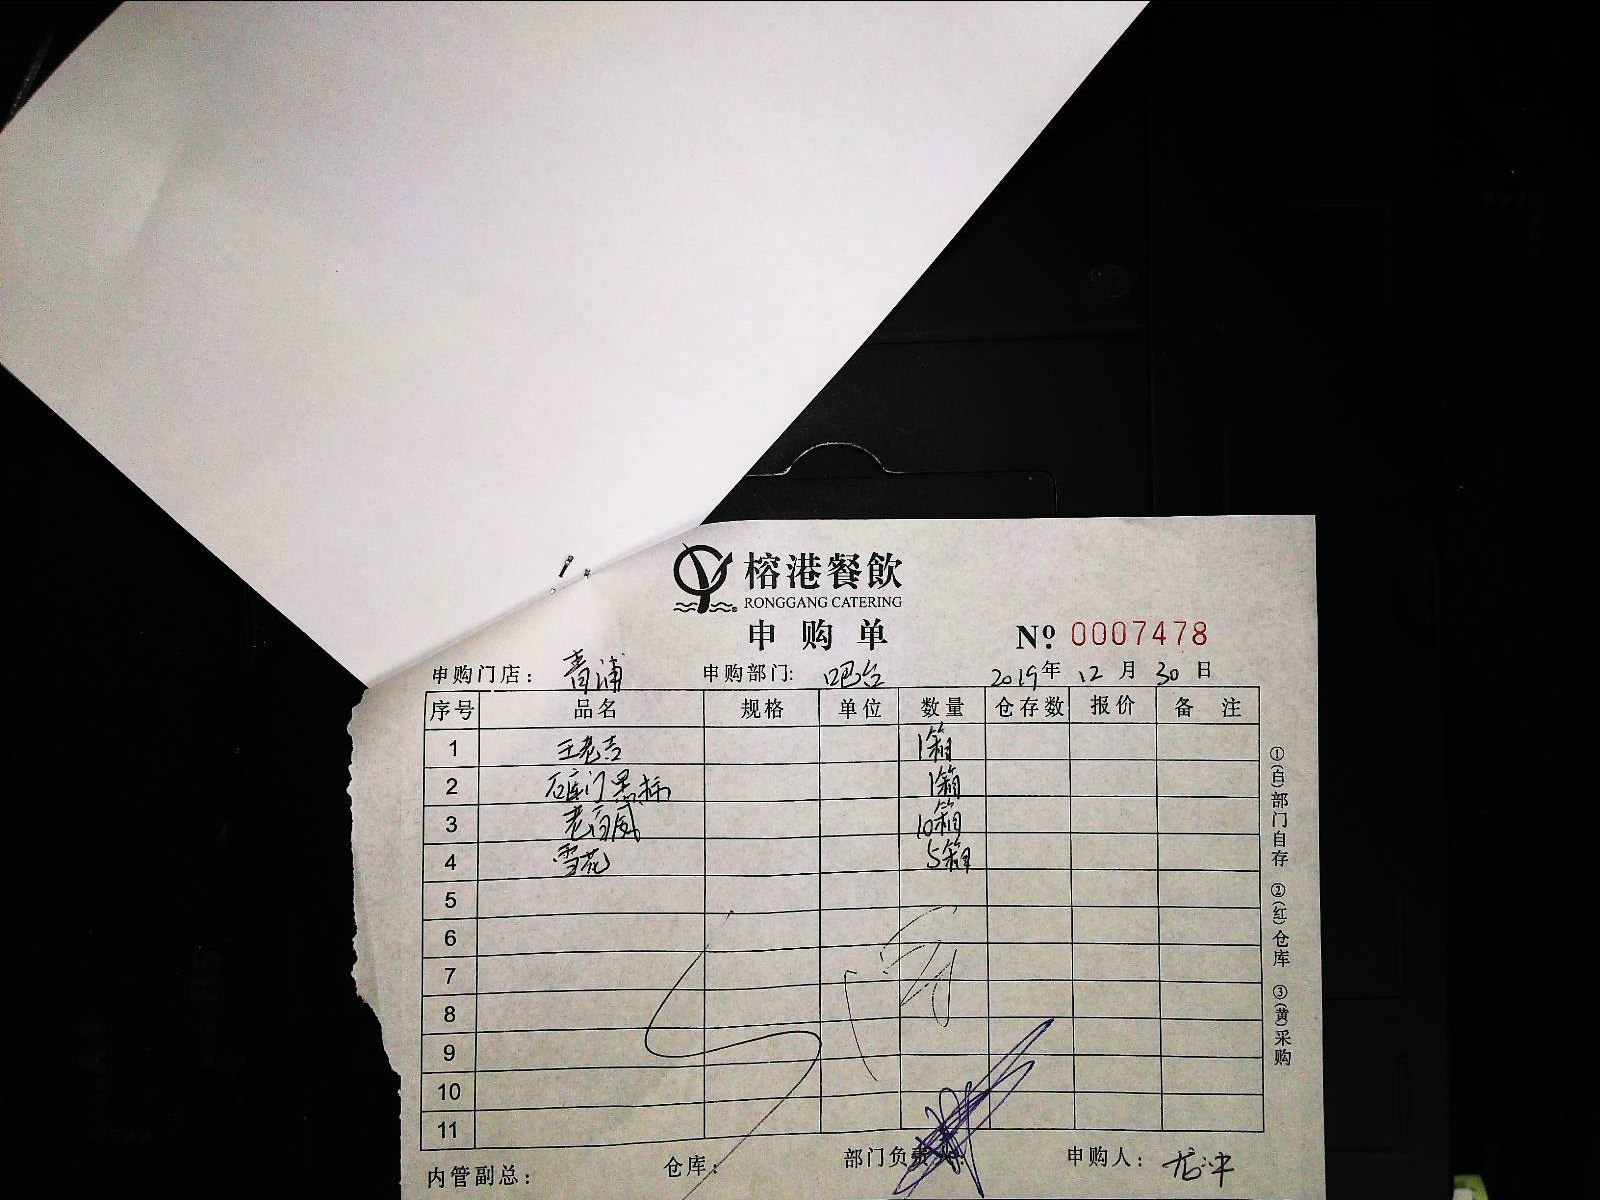 榕港餐飲
RONGGANG CATERING
申购单
№ 0007478
申购门店：青浦 申购部门：吧台 2019年12月30日
序号 品名 规格 单位 数量 仓存数 报价 备注
1 王老吉 1箱
2 石库门黑标 1箱
3 老百威 10箱
4 雪花 5箱
5
6
7
8
9
10
11
内管副总： 仓库： 部门负责人： 申购人：
①(白)部门自存 ②(红)仓库 ③(黄)采购